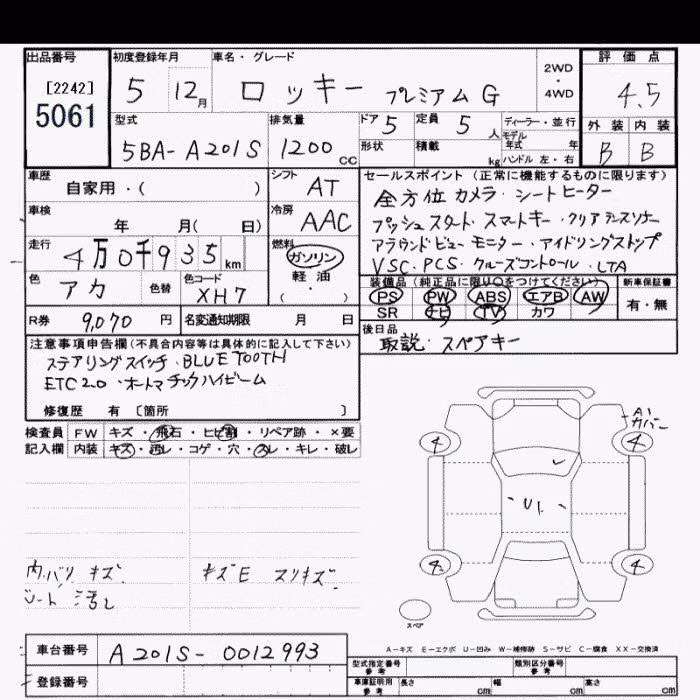 出品番号 初度登録年月 車名・グレード 評価点
[2242]
5061
5 12月 ロッキー プレミアムG 2WD・4WD 4.5
型式 排気量 ドア 5 定員 5人 ディーラー・並行
モデル年式 年
5BA-A201S 1200cc 形状 積載 kg ハンドル 左・右
外装 内装
B B
車歴 自家用・( )
シフト AT
セールスポイント(正常に機能するものに限ります)
全方位カメラ・シートヒーター
プッシュスタート・スマートキー・クリアランスソナー
アラウンドビューモニター・アイドリングストップ
VSC・PCS・クルーズコントロール・LTA
車検 年 月( 日)
冷房 AAC
走行 4万0千935km
燃料 ガソリン
軽油
( ・ )
色 アカ 色替 色コード XH7
装備品(純正品に限り○をつけてください) 新車保証書
PS PW ABS エアB AW 有・無
SR ナビ TV カワ
R券 9,070円 名変通知期限 月 日
後日品
取説・スペアキー
注意事項申告欄(不具合内容等は具体的に記入して下さい)
ステアリングスイッチ・BLUETOOTH
ETC2.0・オートマチックハイビーム
修復歴 有 〔箇所 〕
検査員 FW キズ・飛石・ヒビ割・リペア跡・×要
記入欄 内装 キズ・汚レ・コゲ・穴・スレ・キレ・破レ
A1
カバー
4 4
U1
4 4
内バリ キズ キズE スリキズ
シート 汚レ
スペア
A-キズ E-エクボ U-凹み W-補修跡 S-サビ C-腐食 XX-交換済
車台番号 A201S-0012993
登録番号
型式指定番号 参考 類別区分番号 参考
車庫証明用 参考 長さ cm 幅 cm 高さ cm